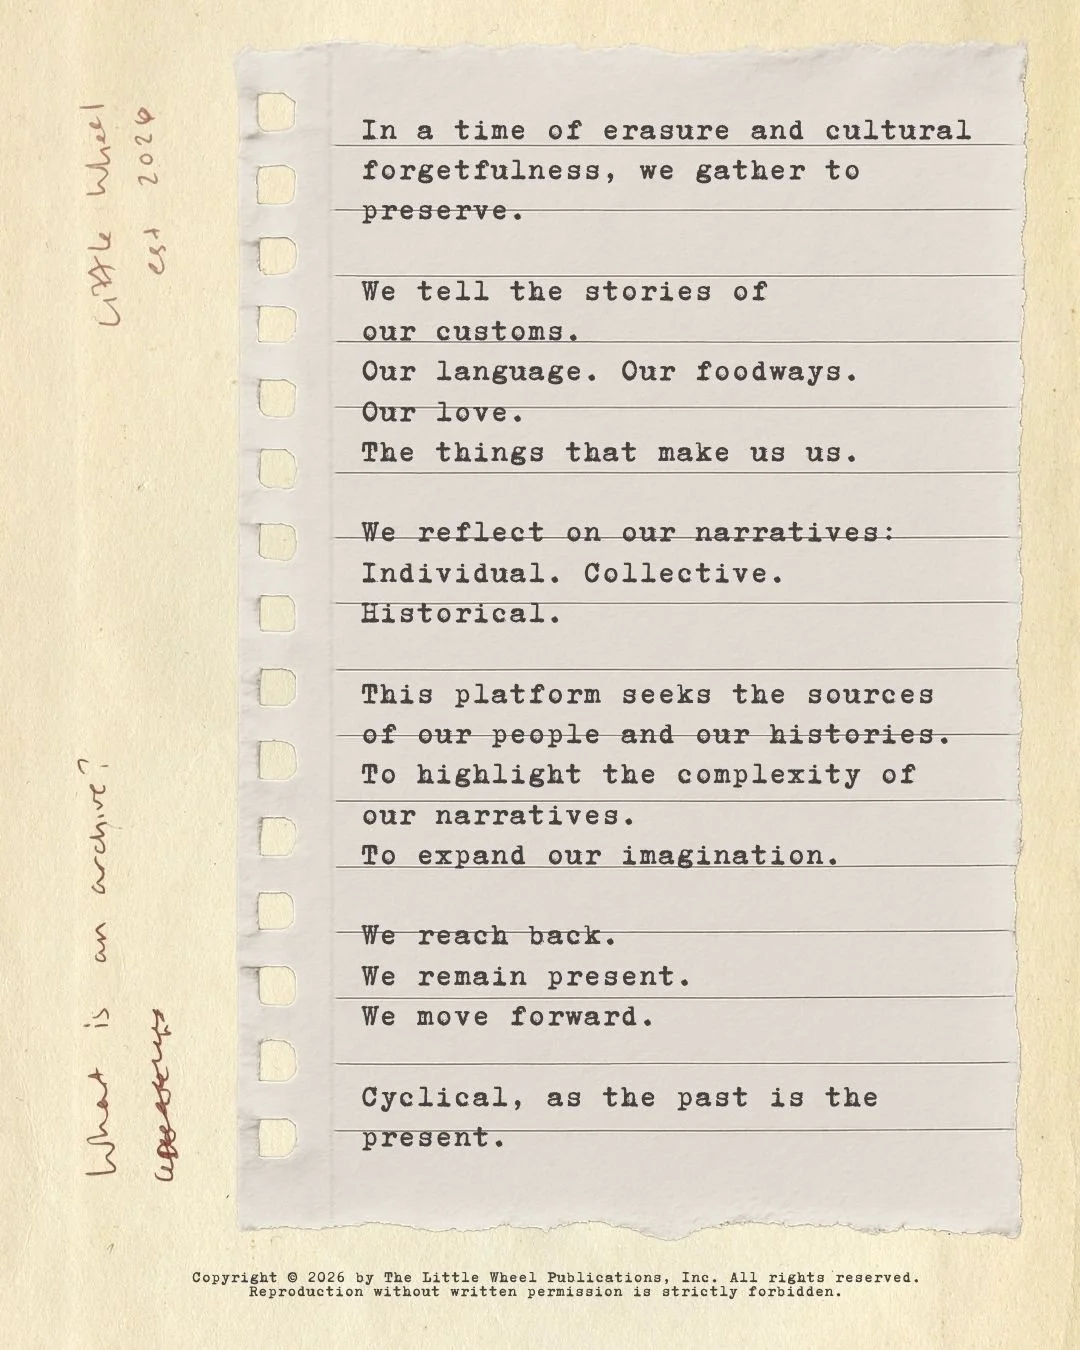 Little Wheel
est 2026
In a time of erasure and cultural
forgetfulness, we gather to
preserve.
We tell the stories of
our customs.
Our language. Our foodways.
Our love.
The things that make us us.
We reflect on our narratives:
Individual. Collective.
Historical.
This platform seeks the sources
of our people and our histories.
To highlight the complexity of
our narratives.
To expand our imagination.
We reach back.
We remain present.
We move forward.
Cyclical, as the past is the
present.
What is an archive?
Copyright © 2026 by The Little Wheel Publications, Inc. All rights reserved.
Reproduction without written permission is strictly forbidden.